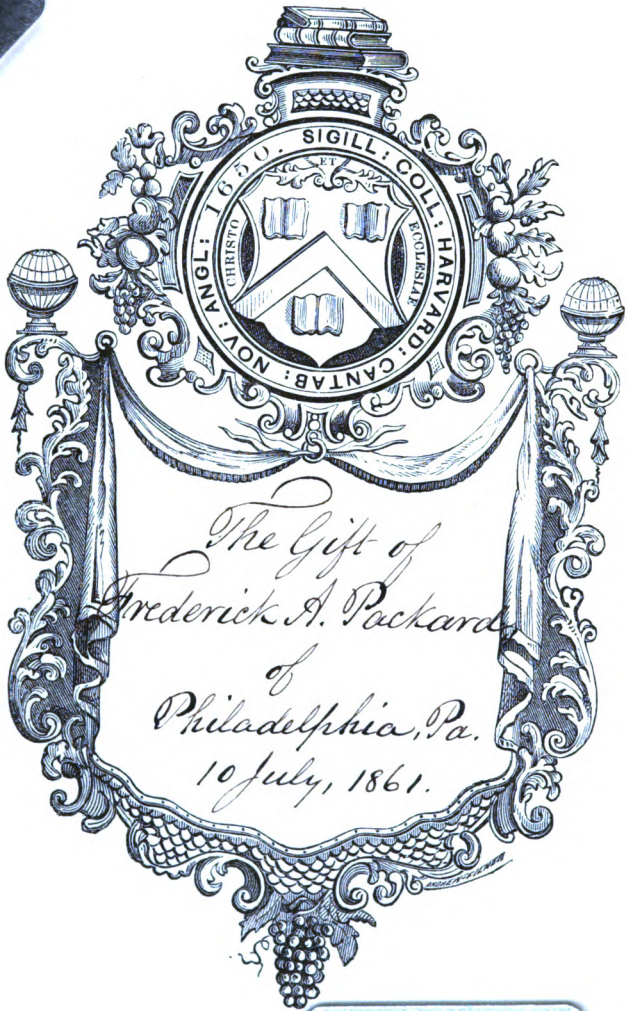 SIGILL: COLL: HARVARD: CANTAB: NOV: ANGL: 1650.
CHRISTO
ET
ECCLESIAE
The Gift of
Frederick A. Packard,
of
Philadelphia, Pa.
10 July, 1861.